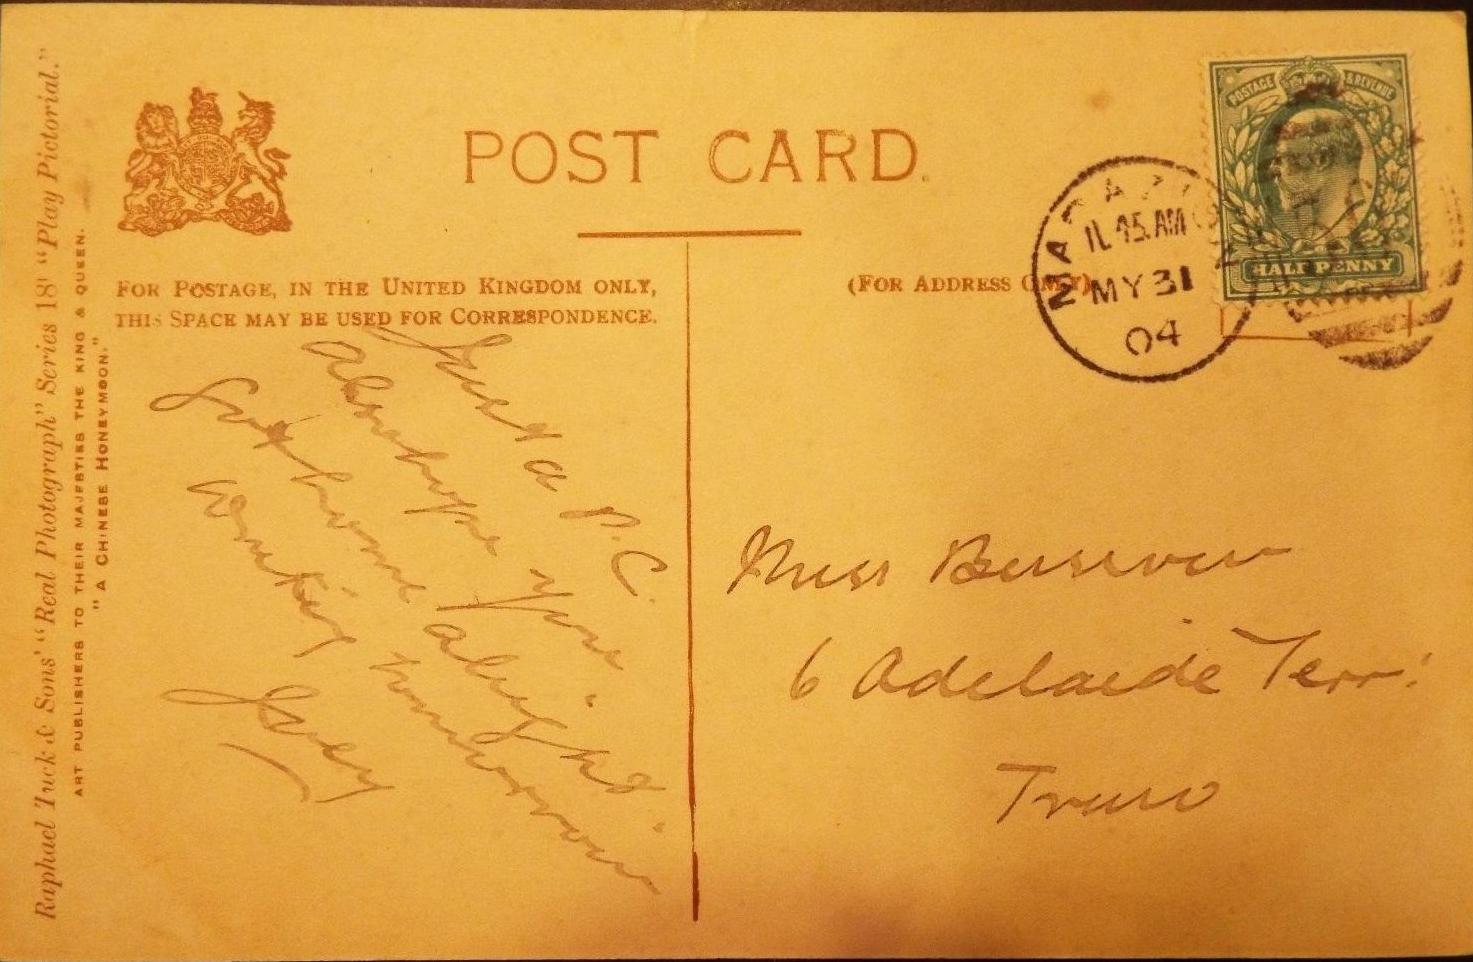 Raphael Tuck & Sons' "Real Photograph" Series 181 "Play Pictorial."
ART PUBLISHERS TO THEIR MAJESTIES THE KING & QUEEN.
"A CHINESE HONEYMOON."
POST CARD.
FOR POSTAGE, IN THE UNITED KINGDOM ONLY,
THIS SPACE MAY BE USED FOR CORRESPONDENCE.
(FOR ADDRESS ONLY)
POSTAGE & REVENUE
HALF PENNY
MARAZION
11.45 AM
MY 31
04
Just a P.C.
hope you
Got home alright
writing tomorrow
Miss
6 Adelaide Terr.
Truro